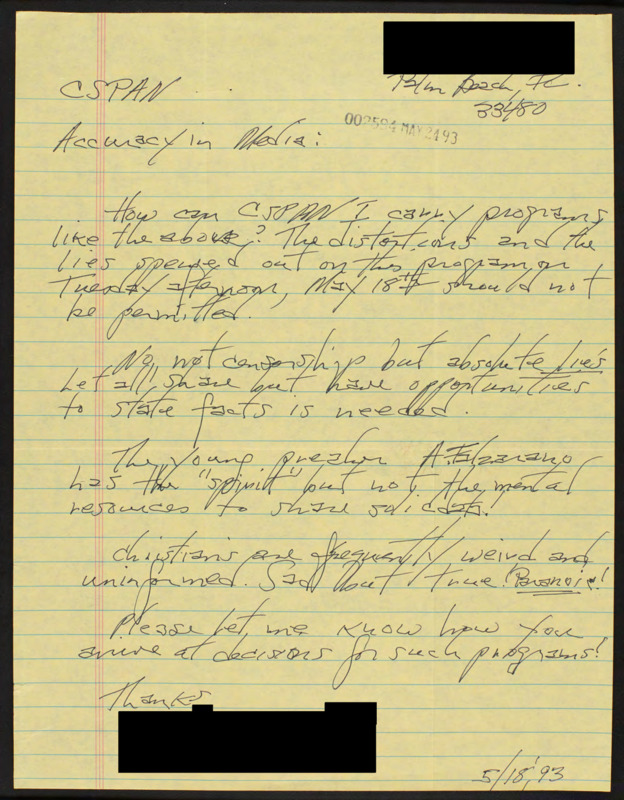 Palm Beach, FL.
33480
CSPAN
003594 MAY 24 93
Accuracy in Media:
How can CSPAN I carry programs
like the above? The distortions and the
lies spewed out on this program on
Tuesday afternoon, May 18th should not
be permitted.
No, not censorship but absolute lies
Let all share but have opportunities
to state facts is needed.
The young preacher A.
has the "spirit" but not the mental
resources to share
Christians are frequently weird and
uninformed. Sad but true! Paranoia!
Please let me know how you
arrive at decisions for such programs!
Thanks
5/18/93